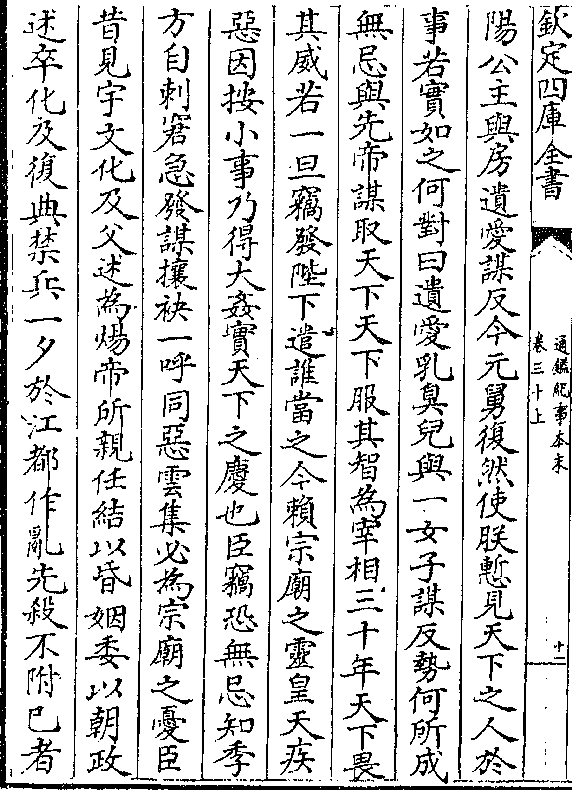 欽定四庫全書
通鑑紀事本末
卷三十上
十二
陽公主與房遺愛謀反今元舅復然使朕慙見天下之人於
事若實如之何對曰遺愛乳臭兒與一女子謀反勢何所成
無忌與先帝謀取天下天下服其智為宰相三十年天下畏
其威若一旦竊發陛下遣誰當之今賴宗廟之靈皇天疾
惡因按小事乃得大姦實天下之慶也臣竊恐無忌知季
方自刺窘急發謀攘袂一呼同惡雲集必為宗廟之憂臣
昔見宇文化及父述為煬帝所親任結以昏姻委以朝政
述卒化及復典禁兵一夕於江都作亂先殺不附己者